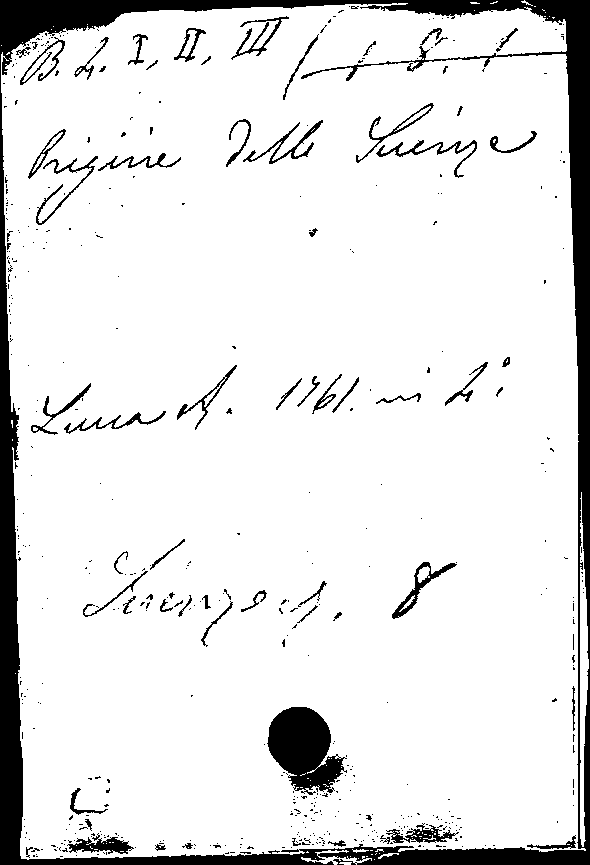 B. 4. I, II, III ( 1 8. 1
Origine delle Scienze
Lucca 1761. in 4°.
Scienze 8